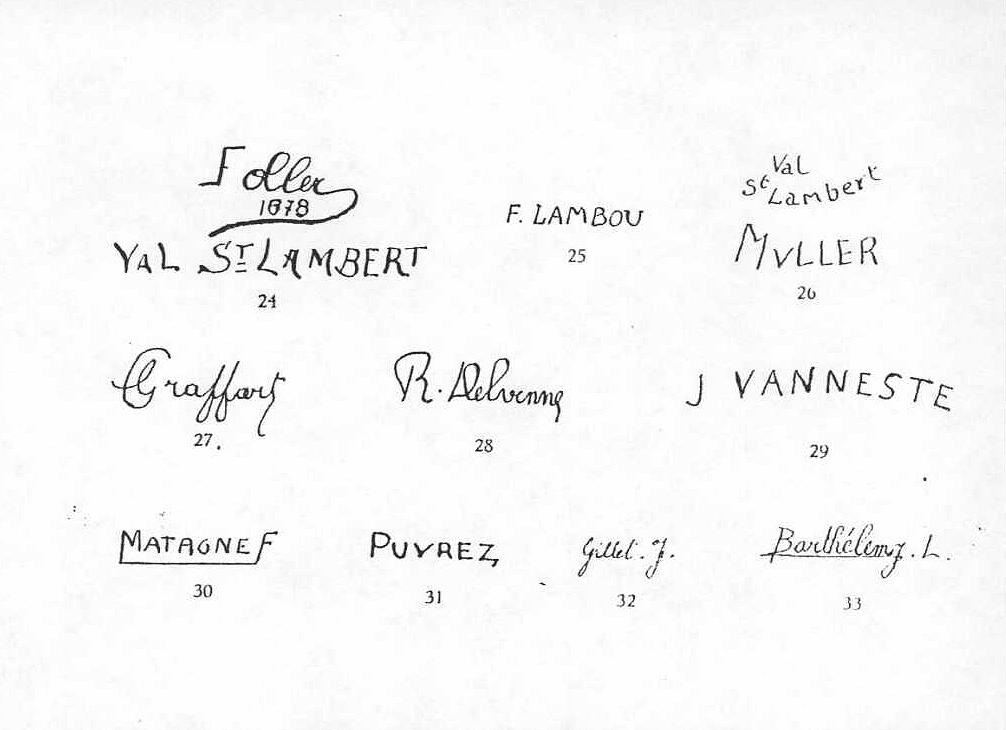 F oller
1878
VAL ST LAMBERT
24
F. LAMBOU
25
Val
St Lambert
MVLLER
26
Graffart
27.
R. Delvenne
28
J VANNESTE
29
MATAGNE F
30
PUVREZ
31
Gillet. J.
32
Barthélemy. L.
33